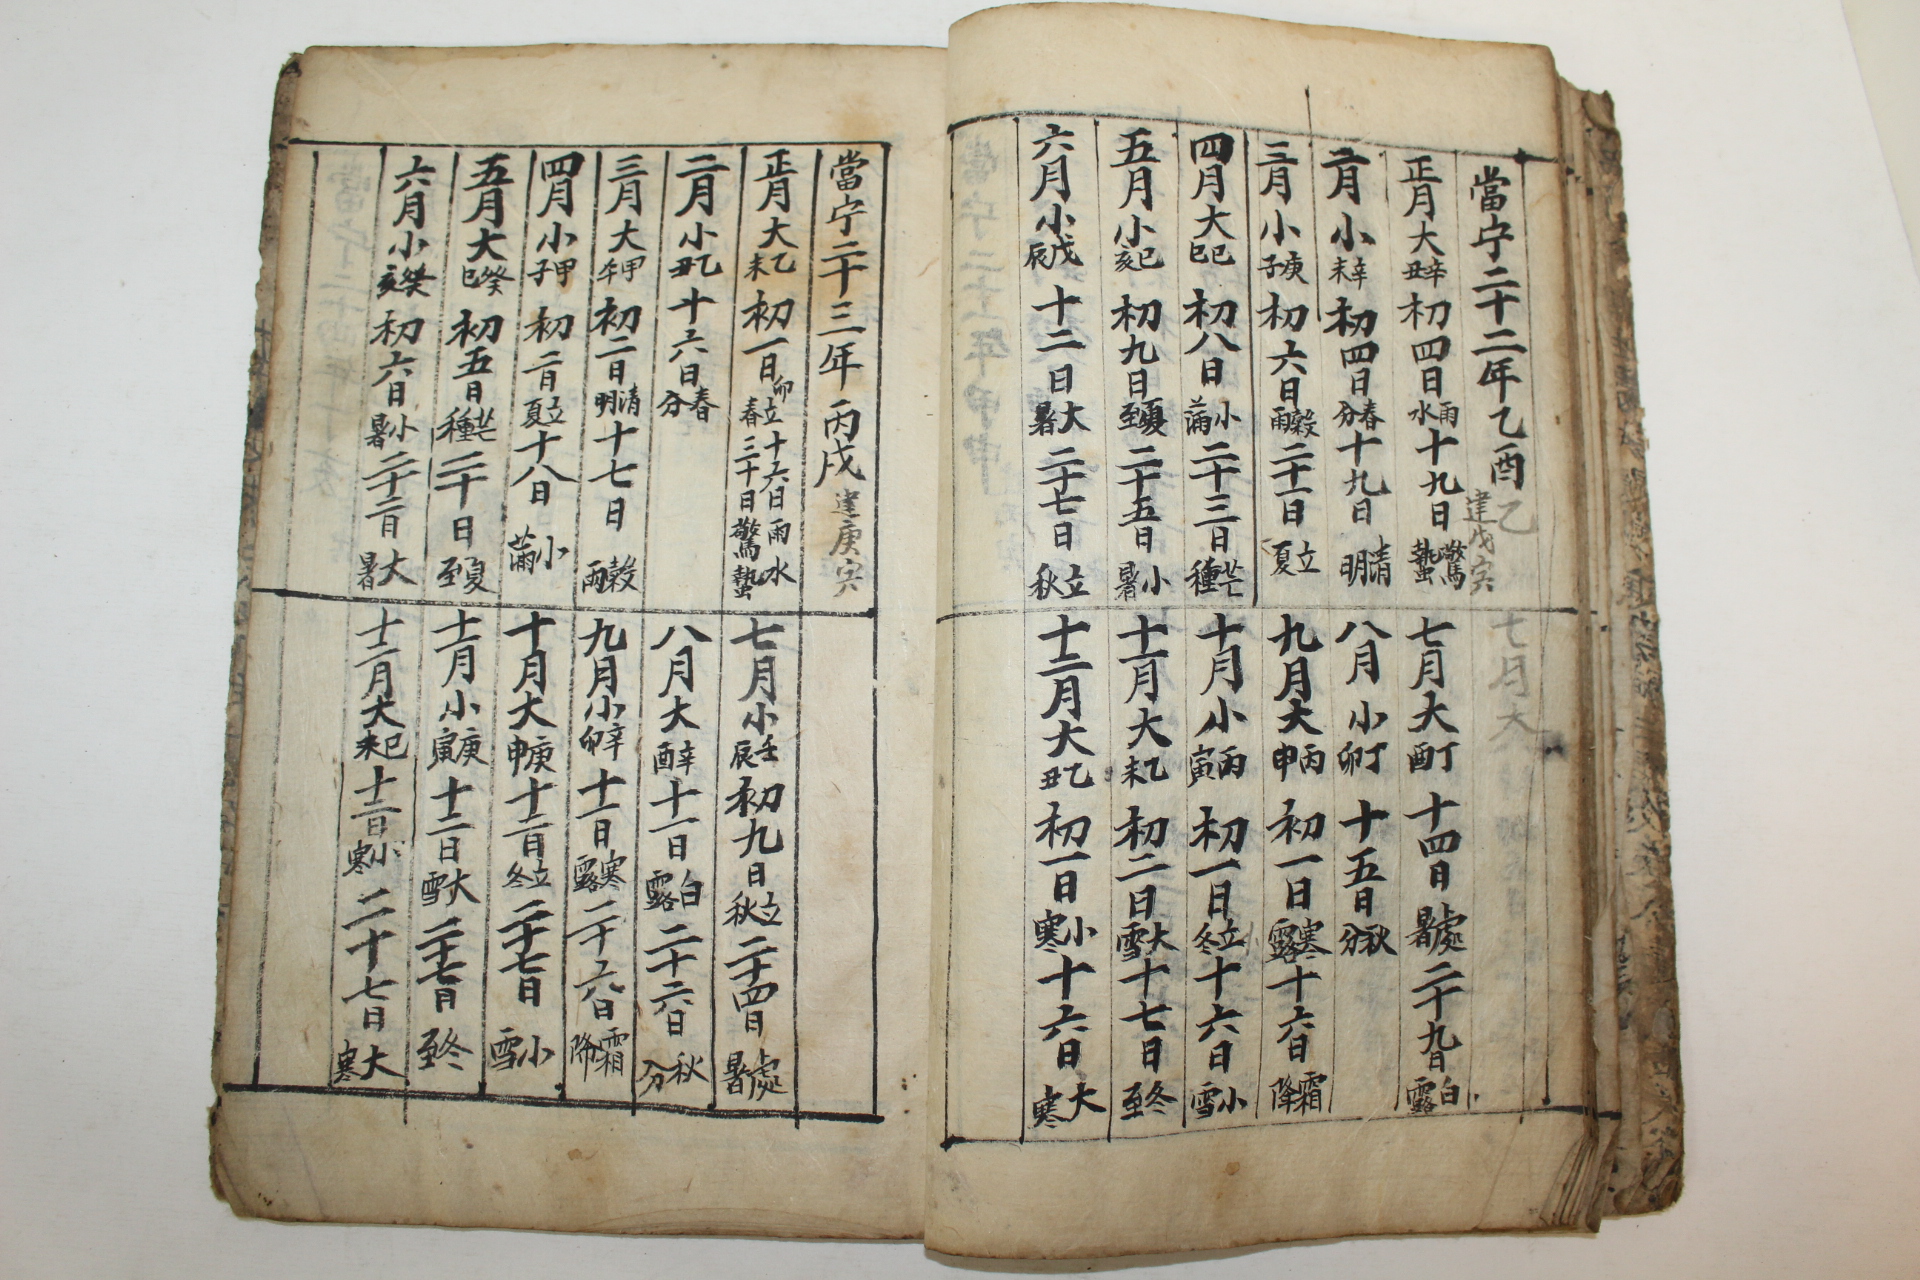 當宁二十二年乙酉乙建戊寅
正月大辛丑初四日雨水十九日驚蟄
二月小辛未初四日春分十九日清明
三月小庚子初六日穀雨二十一日立夏
四月大己巳初八日小滿二十三日芒種
五月小己亥初九日夏至二十五日小暑
六月小戊辰十二日大暑二十七日立秋
七月大
七月大丁酉十四日處暑二十九日白露
八月小丁卯十五日秋分
九月大丙申初一日寒露十六日霜降
十月小丙寅初一日立冬十六日小雪
十一月大乙未初二日大雪十七日冬至
十二月大乙丑初一日小寒十六日大寒
當宁二十三年丙戌建庚寅
正月大乙未初一日卯立春十六日雨水三十日驚蟄
二月小乙丑十六日春分
三月大甲午初二日清明十七日穀雨
四月小甲子初二日立夏十八日小滿
五月大癸巳初五日芒種二十日夏至
六月小癸亥初六日小暑二十二日大暑
七月小壬辰初九日立秋二十四日處暑
八月大辛酉十一日白露二十六日秋分
九月小辛卯十一日寒露二十六日霜降
十月大庚申十二日立冬二十七日小雪
十一月小庚寅十二日大雪二十七日冬至
十二月大己未十二日小寒二十七日大寒